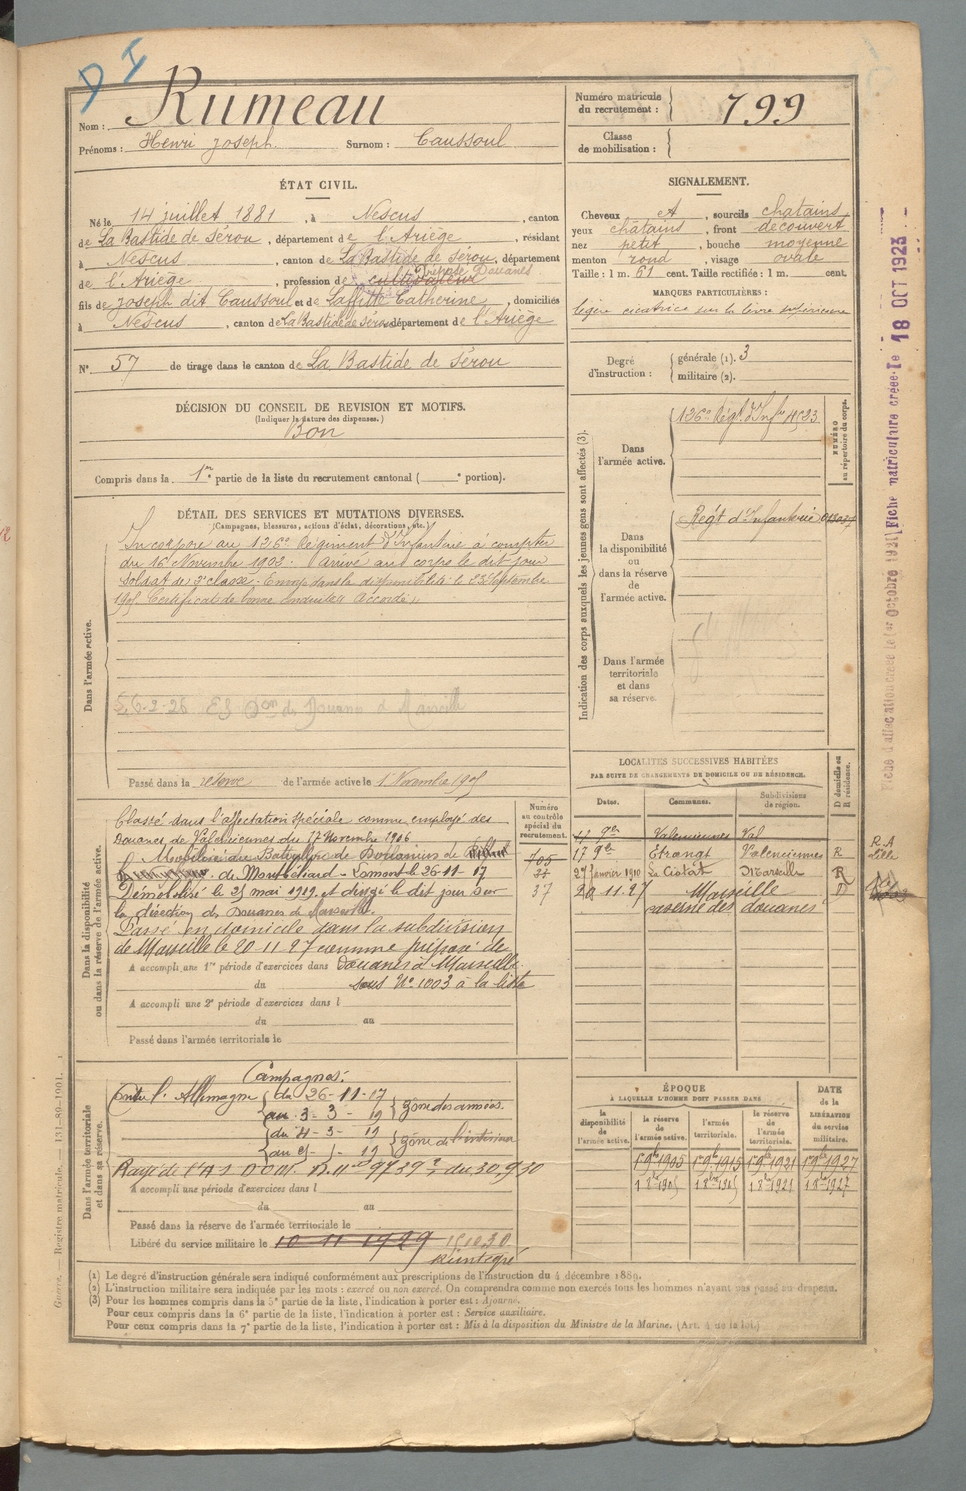 D I
Nom : Rumeau
Prénoms : Henri Joseph Surnom : Caussoul
Numéro matricule du recrutement : 799
Classe de mobilisation :
ÉTAT CIVIL.
Né le 14 juillet 1881, à Nescus, canton
de La Bastide de Sérou, département de l'Ariège, résidant
à Nescus, canton de La Bastide de Sérou, département
de l'Ariège, profession de cultivateur Préposé Douanes
fils de Joseph dit Caussoul et de Laffitte Catherine, domiciliés
à Nescus, canton de La Bastide de Sérou département de l'Ariège
N° 57 de tirage dans le canton de La Bastide de Sérou
SIGNALEMENT.
Cheveux et, sourcils chatains
yeux châtains, front découvert
nez petit, bouche moyenne
menton rond, visage ovale
Taille : 1 m. 61 cent. Taille rectifiée : 1 m. cent.
MARQUES PARTICULIÈRES :
légère cicatrice sur la lèvre supérieure
Degré d'instruction : générale (1). 3
militaire (2).
DÉCISION DU CONSEIL DE REVISION ET MOTIFS.
(Indiquer la nature des dispenses.)
Bon
Compris dans la 1re partie de la liste du recrutement cantonal ( e portion).
DÉTAIL DES SERVICES ET MUTATIONS DIVERSES.
(Campagnes, blessures, actions d'éclat, décorations, etc.)
Dans l'armée active.
Incorporé au 126e Régiment d'Infanterie à compter
du 16 Novembre 1902. Arrivé au corps le dit jour
soldat de 2e classe. Envoyé dans la disponibilité le 23 Septembre
1905 Certificat de bonne conduite accordé.
6-2-26 Don de Douanes d Marseille
Passé dans la réserve de l'armée active le 1 Novembre 1905
Indication des corps auxquels les jeunes gens sont affectés (3).
NUMÉRO au répertoire du corps.
Dans l'armée active. 126e Régt d'Infie 4523
Dans la disponibilité ou dans la réserve de l'armée active. Régt d'Infanterie
Dans l'armée territoriale et dans sa réserve.
Fiche d'affectation créée le 1er Octobre 1931
Fiche matriculaire créée le 18 OCT 1923
Dans la disponibilité ou dans la réserve de l'armée active.
Numéro au contrôle spécial du recrutement.
Classé dans l'affectation spéciale comme employé des
Douanes de Valenciennes du 17 Novembre 1906
Mobilisé au Bataillon de Douaniers de
de Montbéliard - Lomont le 26-11-17
Démobilisé le 25 mai 1919 et dirigé le dit jour sur
la direction des Douanes de Marseille.
Passé en domicile dans la subdivision
de Marseille le 20 11 27 comme préposé de
A accompli une 1re période d'exercices dans Douanes à Marseille
du sous N° 1003 à la liste
A accompli une 2e période d'exercices dans l
du au
Passé dans l'armée territoriale le
705
37
LOCALITÉS SUCCESSIVES HABITÉES
PAR SUITE DE CHANGEMENTS DE DOMICILE OU DE RÉSIDENCE.
Dates. Communes. Subdivisions de région. D domicile ou R résidence.
17 9bre Valenciennes Val
17 9e Etrangt Valenciennes R
27 janvier 1910 La Ciotat Marseille R
20 11.27 Marseille D
caserne des douanes
Dans l'armée territoriale et dans sa réserve.
Campagnes :
Contre l'Allemagne du 26-11-17
au 3-3-19 zône des armées.
du 4-3-19
au zône de l'intérieur
Rayé de l'A S D O M. 9739 du 30.9.30
A accompli une période d'exercices dans l
du au
Passé dans la réserve de l'armée territoriale le
Libéré du service militaire le 10 11 1929 15.10.30
Réintégré
ÉPOQUE
À LAQUELLE L'HOMME DOIT PASSER DANS
la disponibilité de l'armée active. la réserve de l'armée active. l'armée territoriale. la réserve de l'armée territoriale.
DATE de la LIBÉRATION du service militaire.
1er 9bre 1905 1er 9bre 1915 1er 9bre 1921 1er 9bre 1927
1 8bre 1905 1 8bre 1915 1 8bre 1921 1 8bre 1927
(1) Le degré d'instruction générale sera indiqué conformément aux prescriptions de l'instruction du 4 décembre 1889.
(2) L'instruction militaire sera indiquée par les mots : exercé ou non exercé. On comprendra comme non exercés tous les hommes n'ayant pas passé au drapeau.
(3) Pour les hommes compris dans la 5e partie de la liste, l'indication à porter est : Ajourné.
Pour ceux compris dans la 6e partie de la liste, l'indication à porter est : Service auxiliaire.
Pour ceux compris dans la 7e partie de la liste, l'indication à porter est : Mis à la disposition du Ministre de la Marine. (Art. 4 de la loi.)
Guerre. — Registre matricule. — 131-89-1901.